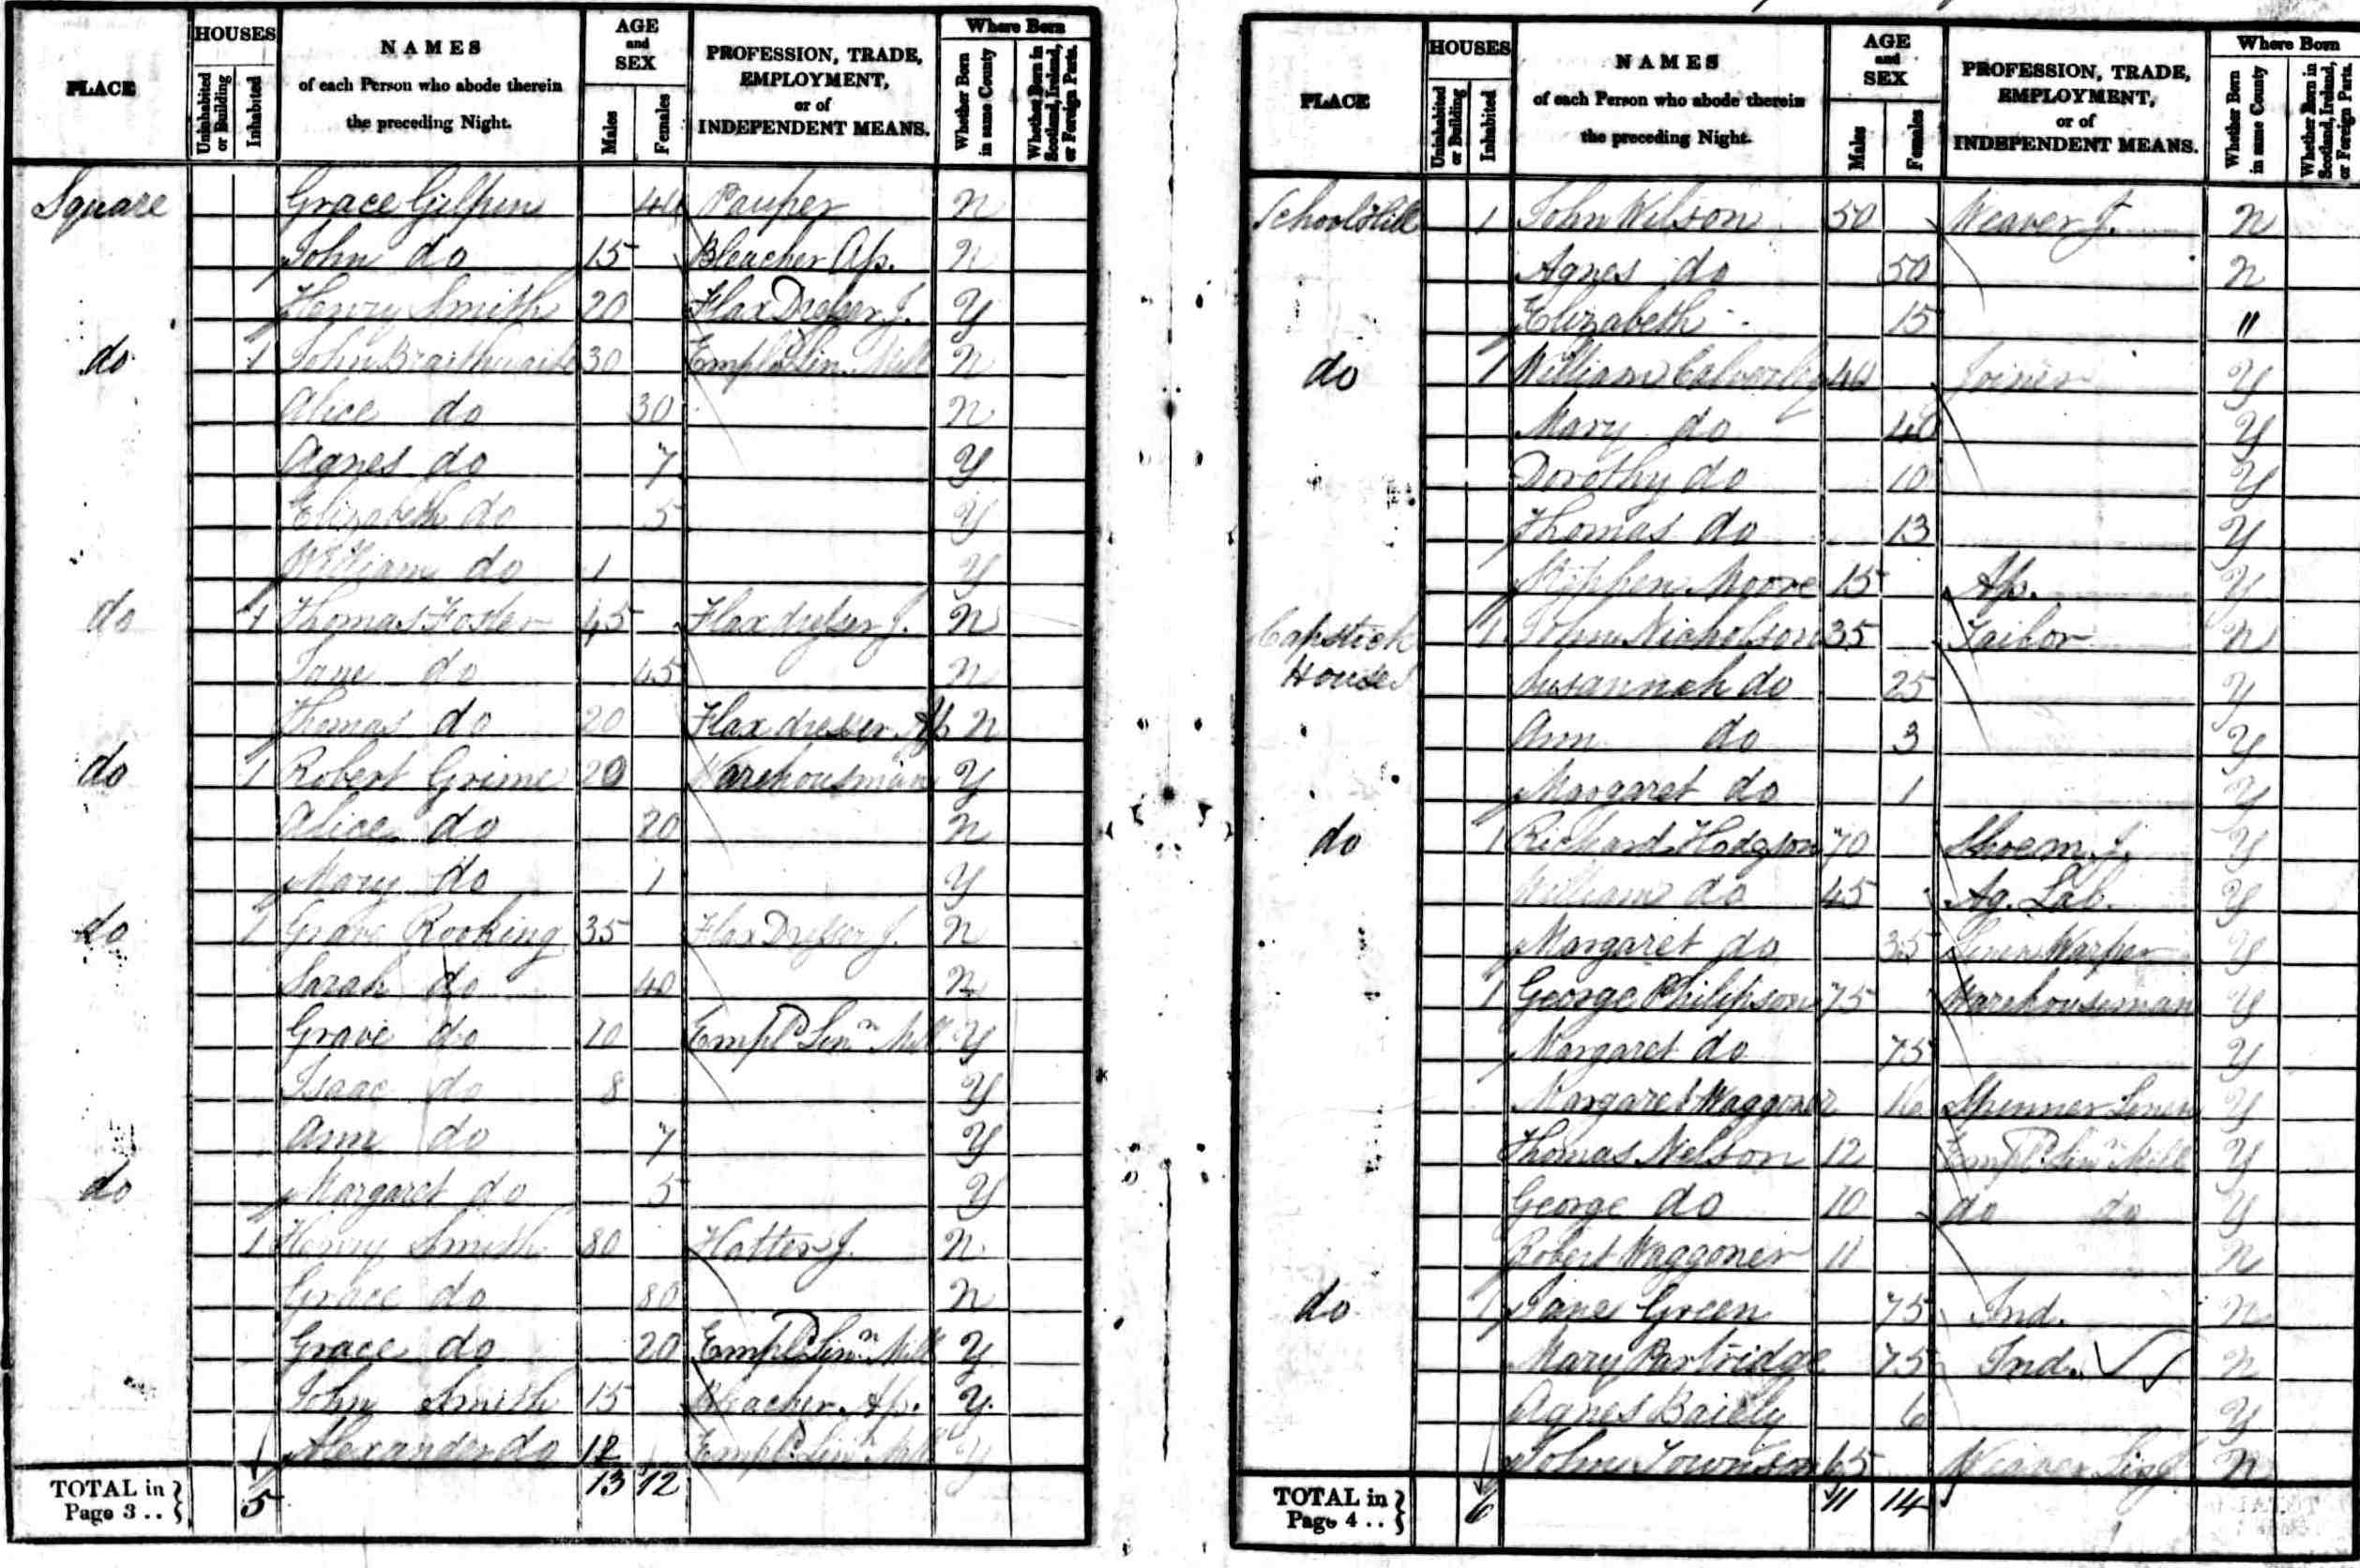 PLACE HOUSES Uninhabited or Building Inhabited NAMES of each Person who abode therein the preceding Night. AGE and SEX Males Females PROFESSION, TRADE, EMPLOYMENT, or of INDEPENDENT MEANS. Where Born Whether Born in same County Whether Born in Scotland, Ireland, or Foreign Parts.
Square Grace Gilpin 44 Pauper N
John do 15 Bleacher Ap. N
Henry Smith 20 Flax Dresser J. Y
do 1 John Braithwaite 30 Empld Linn Mill N
Alice do 30 N
Agnes do 7 Y
Elizabeth do 5 Y
William do 1 Y
do 1 Thomas Foster 45 Flax dresser J. N
Jane do 45 N
Thomas do 20 Flax dresser Ap N
do 1 Robert Grime 20 Warehousman Y
Alice do 20 N
Mary do 1 Y
do 1 Grave Rooking 35 Flax Dresser J. N
Sarah do 40 N
Grave do 10 Empld Linn Mill Y
Isaac do 8 Y
Ann do 7 Y
do Margaret do 5 Y
1 Henry Smith 80 Hatter J. N
Grace do 80 N
Grace do 20 Empld Linn Mill Y
John Smith 15 Bleacher Ap. Y
Alexander do 12 Empld Linn Mill Y
TOTAL in Page 3 .. } 5 13 12
PLACE HOUSES Uninhabited or Building Inhabited NAMES of each Person who abode therein the preceding Night. AGE and SEX Males Females PROFESSION, TRADE, EMPLOYMENT, or of INDEPENDENT MEANS. Where Born Whether Born in same County Whether Born in Scotland, Ireland, or Foreign Parts.
School Hill 1 John Wilson 50 Weaver J. N
Agnes do 50 N
Elizabeth 15 "
do 1 William Calverley 40 Joiner Y
Mary do 40 Y
Dorothy do 10 Y
Thomas do 13 Y
Stephen Moore 15 Ap. Y
Capstick 1 John Nicholson 35 Tailor N
Houses Susannah do 25 Y
Ann do 3 Y
Margaret do 1 Y
do 1 Richard Hodgson 70 Shoem. J. Y
William do 45 Ag. Lab. Y
Margaret do 35 Linen Warper Y
1 George Philipson 75 Warehouseman Y
Margaret do 75 Y
Margaret Waggoner 16 Spinner Linen Y
Thomas Nelson 12 Empld Linn Mill Y
George do 10 do do Y
Robert Waggoner 11 N
do 1 Jane Green 75 Ind. N
Mary Partridge 75 Ind. N
Agnes Baiely 6 Y
John Townson 65 Weaver N
TOTAL in Page 4 .. } 6 11 14